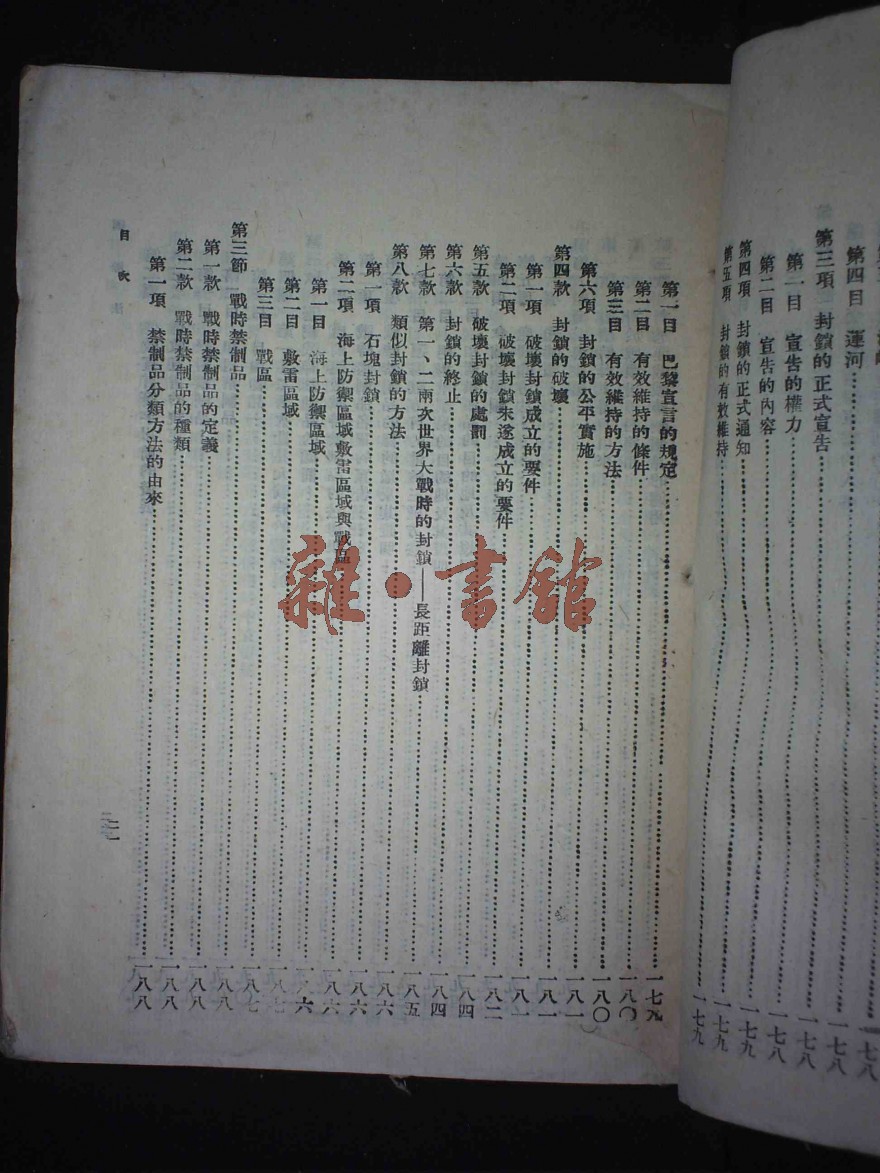 第四目 運河……一七八
第三項 封鎖的正式宣告……一七八
第一目 宣告的權力……一七八
第二目 宣告的內容……一七八
第四項 封鎖的正式通知……一七九
第五項 封鎖的有效維持……一七九
第一目 巴黎宣言的規定……一七九
第二目 有效維持的條件……一八〇
第三目 有效維持的方法……一八〇
第六項 封鎖的公平實施……一八一
第四款 封鎖的破壞……一八一
第一項 破壞封鎖成立的要件……一八一
第二項 破壞封鎖未遂成立的要件……一八二
第五款 破壞封鎖的處罰……一八四
第六款 封鎖的終止……一八四
第七款 第一、二兩次世界大戰時的封鎖——長距離封鎖……一八五
第八款 類似封鎖的方法……一八六
第一項 石塊封鎖……一八六
第二項 海上防禦區域敷雷區域與戰區……一八六
第一目 海上防禦區域……一八六
第二目 敷雷區域……一八七
第三目 戰區……一八七
第三節 戰時禁制品……一八八
第一款 戰時禁制品的定義……一八八
第二款 戰時禁制品的種類……一八八
第一項 禁制品分類方法的由來……一八八
目次
雜·書館